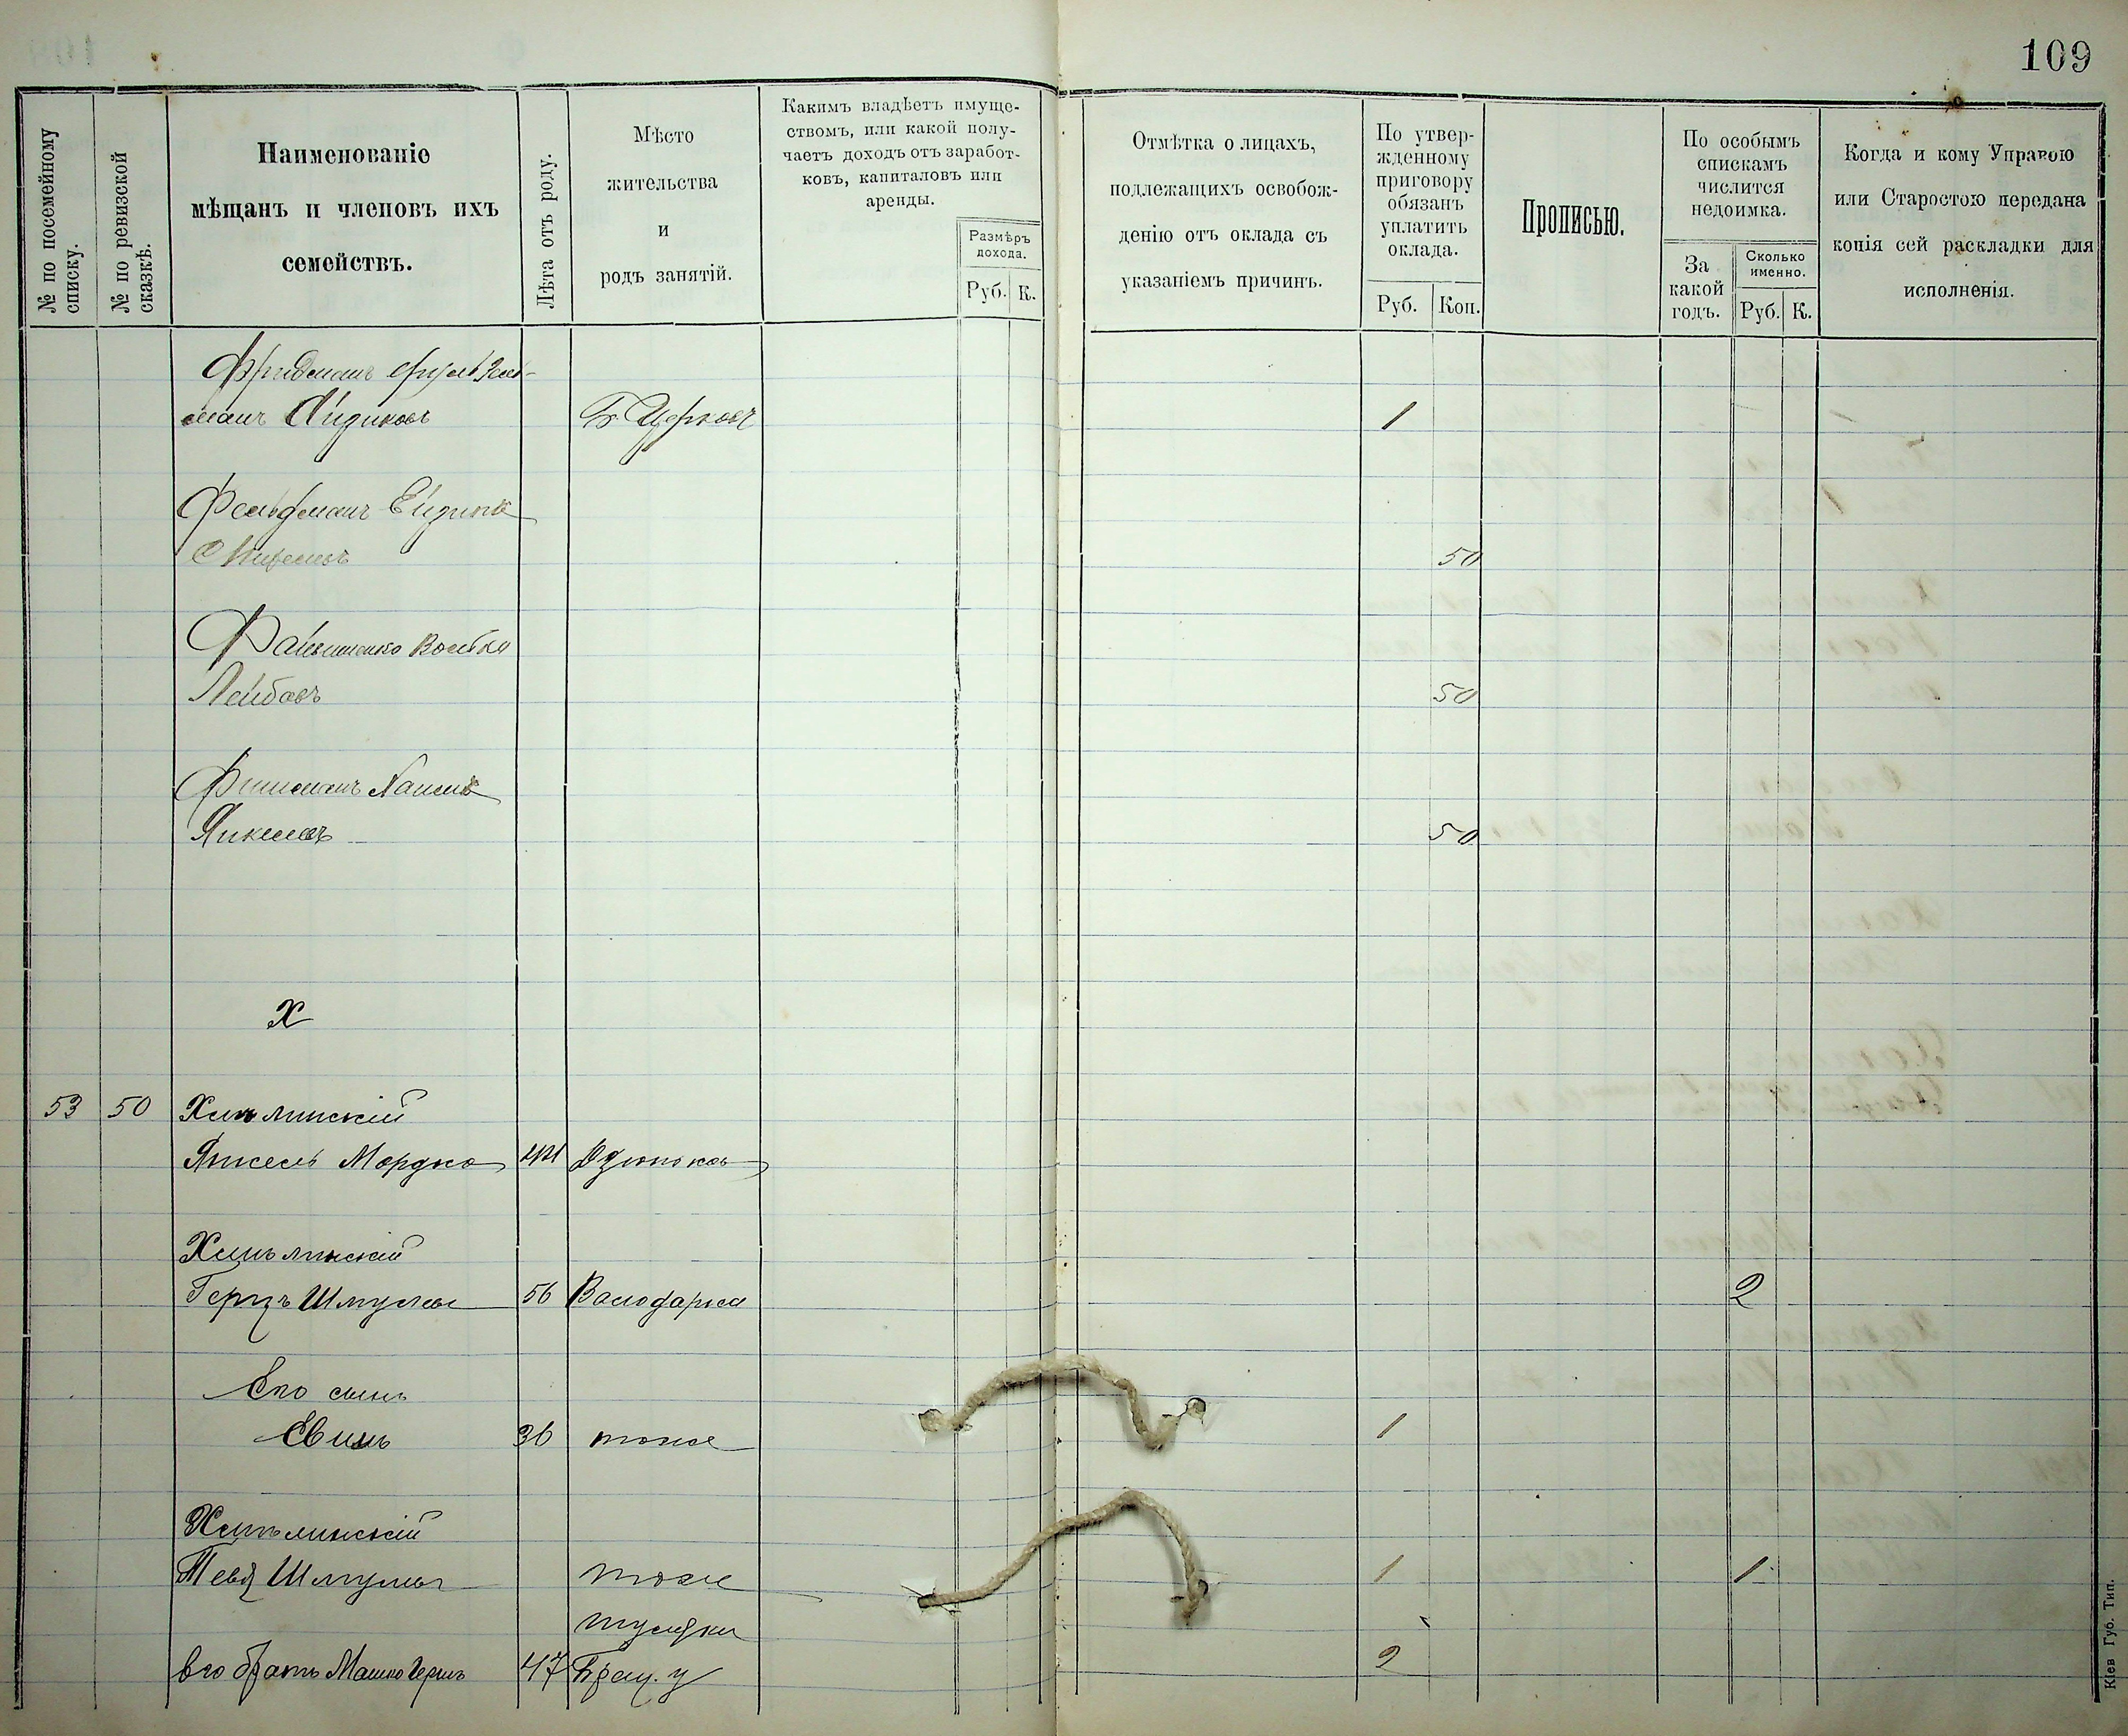 109
№ по посемейному списку.
№ по ревизской сказкѣ.
Наименованіе
мѣщанъ и членовъ ихъ
семействъ.
Лѣта отъ роду.
Мѣсто
жительства
и
родъ занятій.
Какимъ владѣетъ имуще-
ствомъ, или какой полу-
чаетъ доходъ отъ заработ-
ковъ, капиталовъ или
аренды.
Размѣръ
дохода.
Руб. К.
Отмѣтка о лицахъ,
подлежащихъ освобож-
денію отъ оклада съ
указаніемъ причинъ.
По утвер-
жденному
приговору
обязанъ
уплатить
оклада.
Руб. Коп.
Прописью.
По особымъ
спискамъ
числится
недоимка.
За
какой
годъ.
Сколько
именно.
Руб. К.
Когда и кому Управою
или Старостою передана
копія сей раскладки для
исполненія.
Фридманъ
Б. Церковь 1
Фельдманъ
50
Волько
Лейбовъ 50
Янкелевъ 50
Х
53 50 Хмѣлинскій
Янкель Мордко 44 Дзюньков
Хмѣлинскій
Герцъ Шмулев 56 Володарка 2
Его сынъ
36 тоже 1
Хмѣлинскій
Тевя Шмулев тоже 1 1
его братъ Машко Гершъ 47 2
Кіев Губ. Тип.